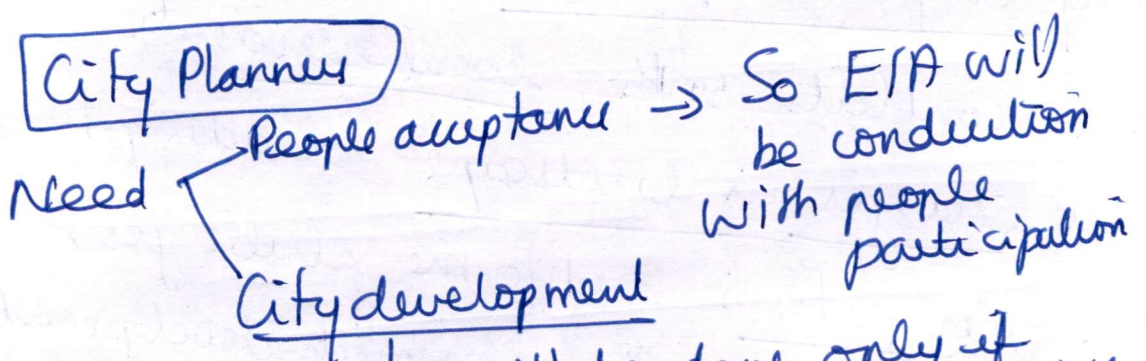 City Planner
People acceptance → So EIA will
be conduction
with people
participation
Need
City development
only if